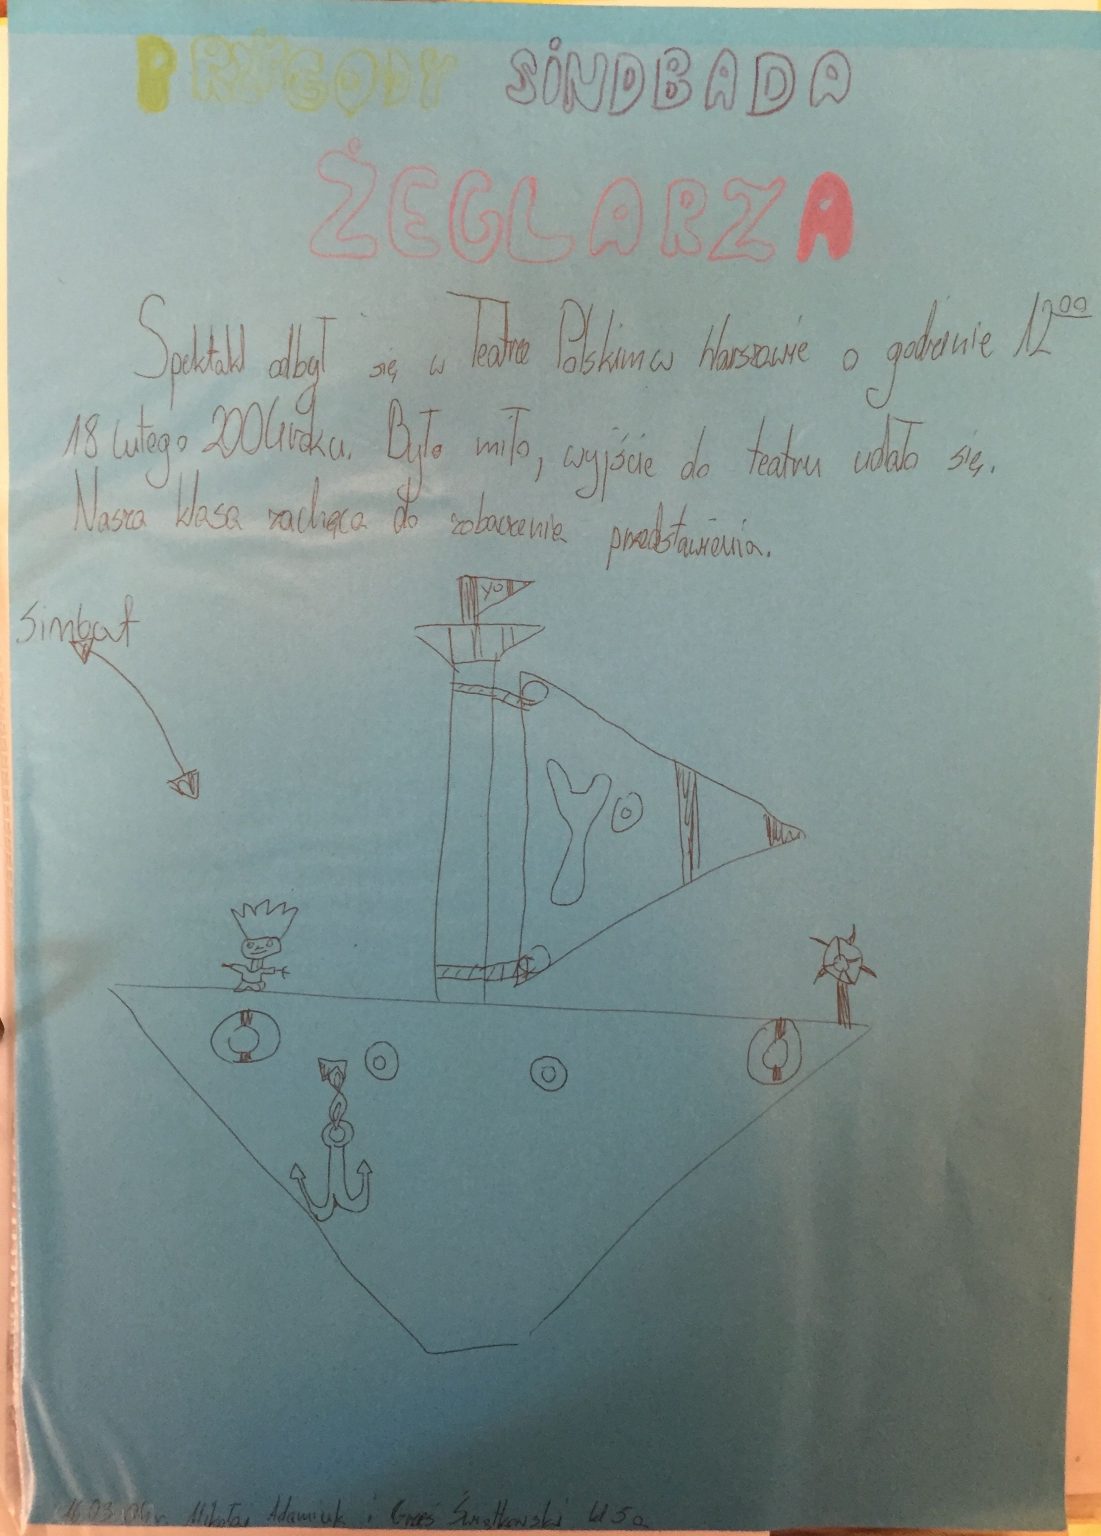 PRZYGODY SINDBADA
ŻEGLARZA
Spektakl odbył się w Teatrze Polskim w Warszawie o godzinie 12⁰⁰
18 lutego 2004 roku. Było miło, wyjście do teatru udało się.
Nasza klasa zachęca do zobaczenia przedstawienia.
Simbat
YO
YO
16.03.04r. Mikołaj Adamiuk i Grześ Świątkowski kl 5a